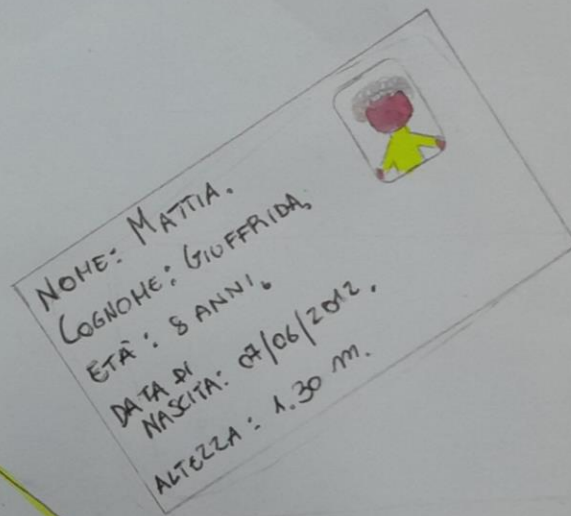 NOME: MATTIA.
COGNOME: GIUFFRIDA.
ETÀ: 8 ANNI.
DATA DI
NASCITA: 07/06/2012.
ALTEZZA: 1.30 m.